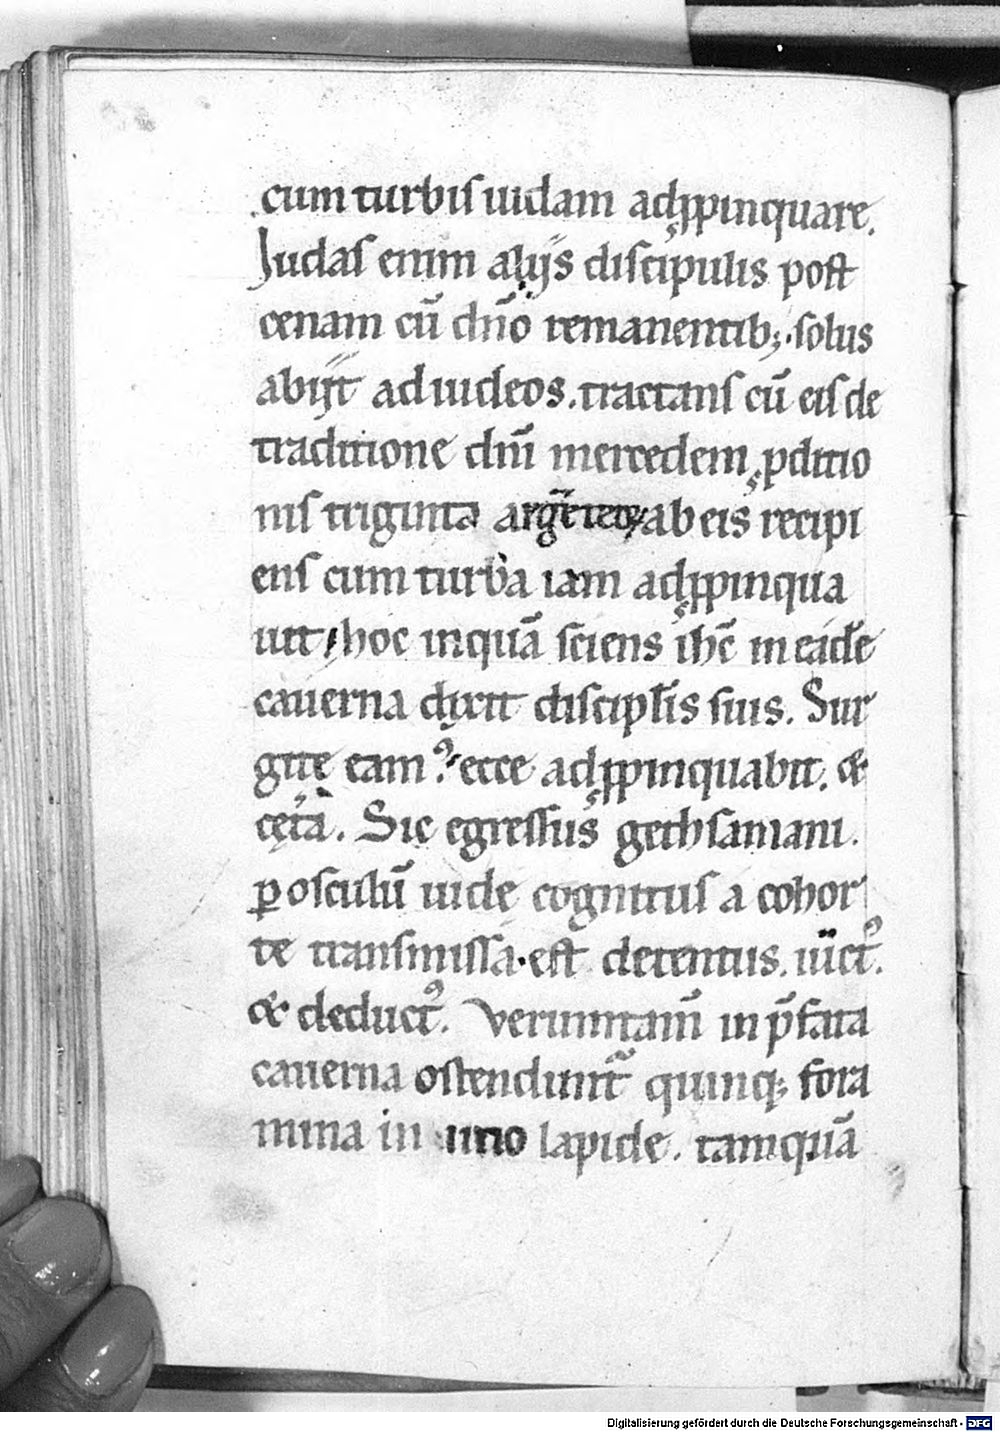 cum turbis uidam adp̱pinquare.
Judas enim alijs discipulis post
cenam cū dn̄o remanentib; solus
abijt ad iudeos. tractans cū eis de
traditione dn̄i mercedem ꝑditio
nis triginta argēteoꝝ ab eis recipi
ens cum turba iam adp̱pinqua
uit / hoc inquā sciens ih̄c in eādē
cauerna dixit discipl̄is suis. Sur
gite eam᷒. ecce adp̱pinquabit. &
cetā. Sic egressus gethsamani.
ꝑ osculū iude cognitus a cohor
te transmissa. est detentus. uīct᷒.
& deduct᷒. Verumtam̄ in p̄fata
cauerna ostendunt᷑ quinq; fora
mina in uno lapide. tamquā
Digitalisierung gefördert durch die Deutsche Forschungsgemeinschaft - DFG